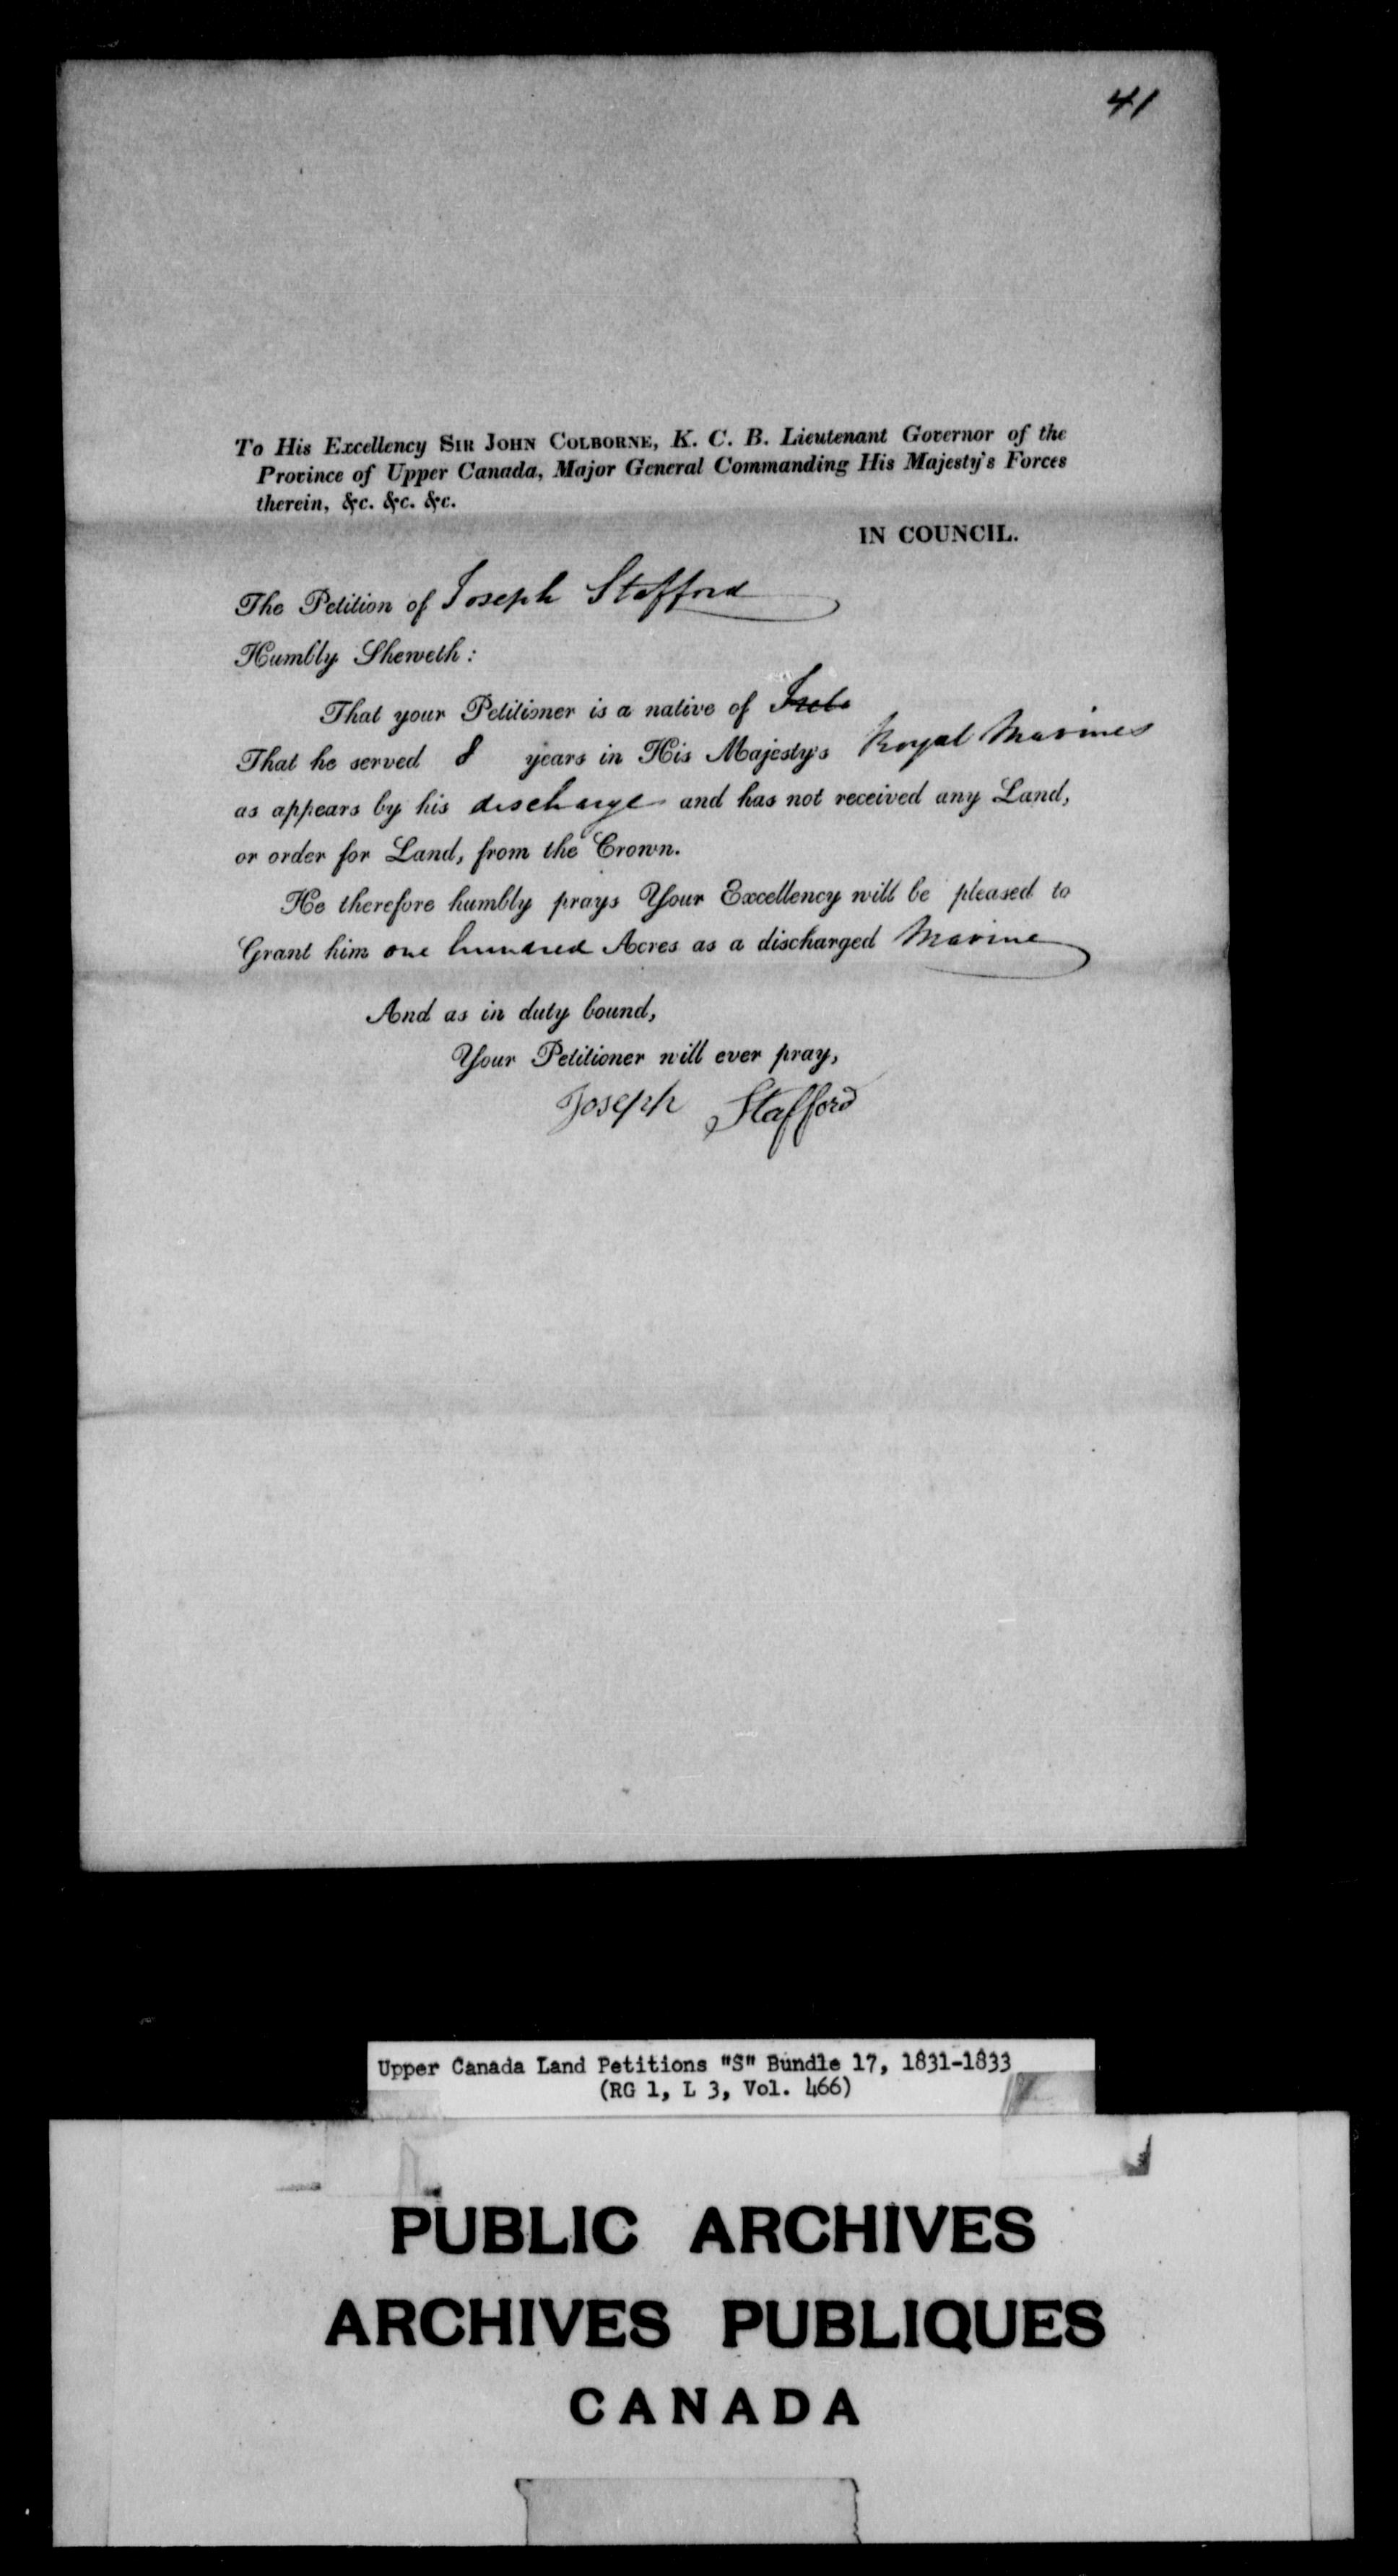 41
To His Excellency SIR JOHN COLBORNE, K. C. B. Lieutenant Governor of the
Province of Upper Canada, Major General Commanding His Majesty's Forces
therein, &c. &c. &c.
IN COUNCIL.
The Petition of Joseph Stafford
Humbly Sheweth:
That your Petitioner is a native of
That he served 8 years in His Majesty's Royal Marines
as appears by his discharge and has not received any Land,
or order for Land, from the Crown.
He therefore humbly prays Your Excellency will be pleased to
Grant him one hundred Acres as a discharged Marine
And as in duty bound,
Your Petitioner will ever pray,
Joseph Stafford
Upper Canada Land Petitions "S" Bundle 17, 1831-1833
(RG 1, L 3, Vol. 466)
PUBLIC ARCHIVES
ARCHIVES PUBLIQUES
CANADA